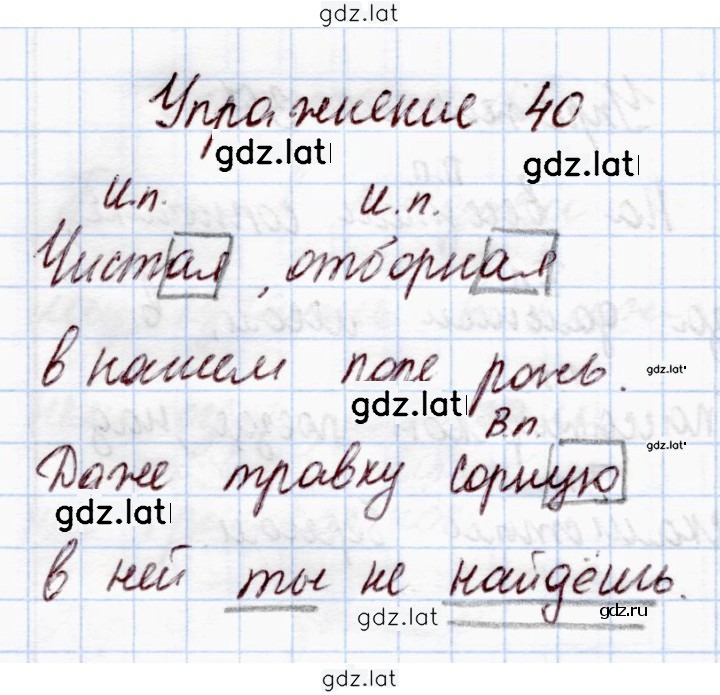 gdz.lat
Упражнение 40
gdz.lat gdz.lat
И.п. И.п.
Чистая, отборная
в нашем поле рожь.
gdz.lat
gdz.lat
В.п.
gdz.lat
Даже травку сорную
gdz.lat
в ней ты не найдёшь.
gdz.ru
gdz.lat
gdz.lat